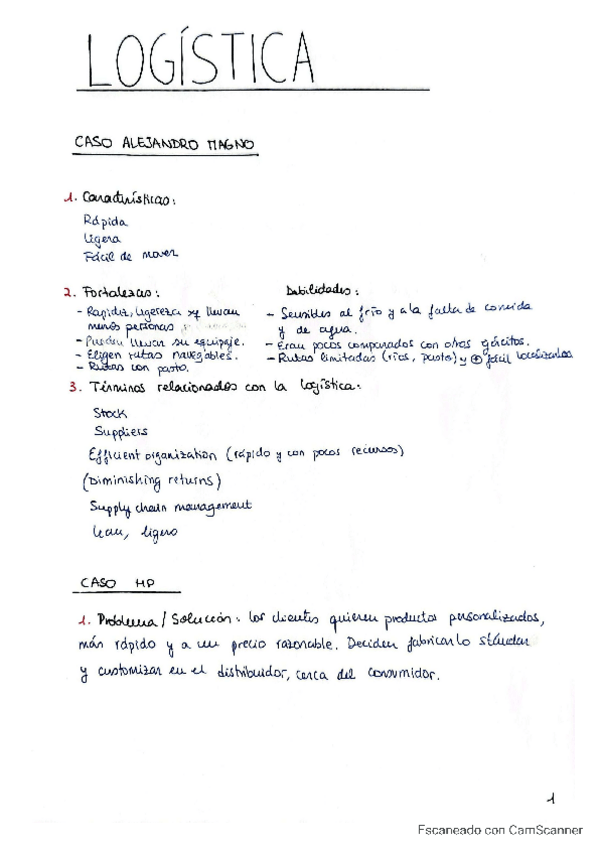 LOGÍSTICA
CASO ALEJANDRO MAGNO
1. Características:
Rápida
Ligera
Fácil de mover
2. Fortalezas:
- Rapidez, ligereza xq llevan
menos personas
- Pueden llevar su equipaje.
- Eligen rutas navegables.
- Rutas con pasto.
Debilidades:
- Sensibles al frío y a la falta de comida
y de agua.
- Eran pocos comparados con otros ejércitos.
- Rutas limitadas (ríos, pasto) y ⊕ fácil localizarlos
3. Términos relacionados con la logística:
Stock
Suppliers
Efficient organization (rápido y con pocos recursos)
(Diminishing returns)
Supply chain management
Lean, ligero
CASO HP
1. Problema / Solución: los clientes quieren productos personalizados,
más rápido y a un precio razonable. Deciden fabricar lo stándar
y customizar en el distribuidor, cerca del consumidor.
1
Escaneado con CamScanner